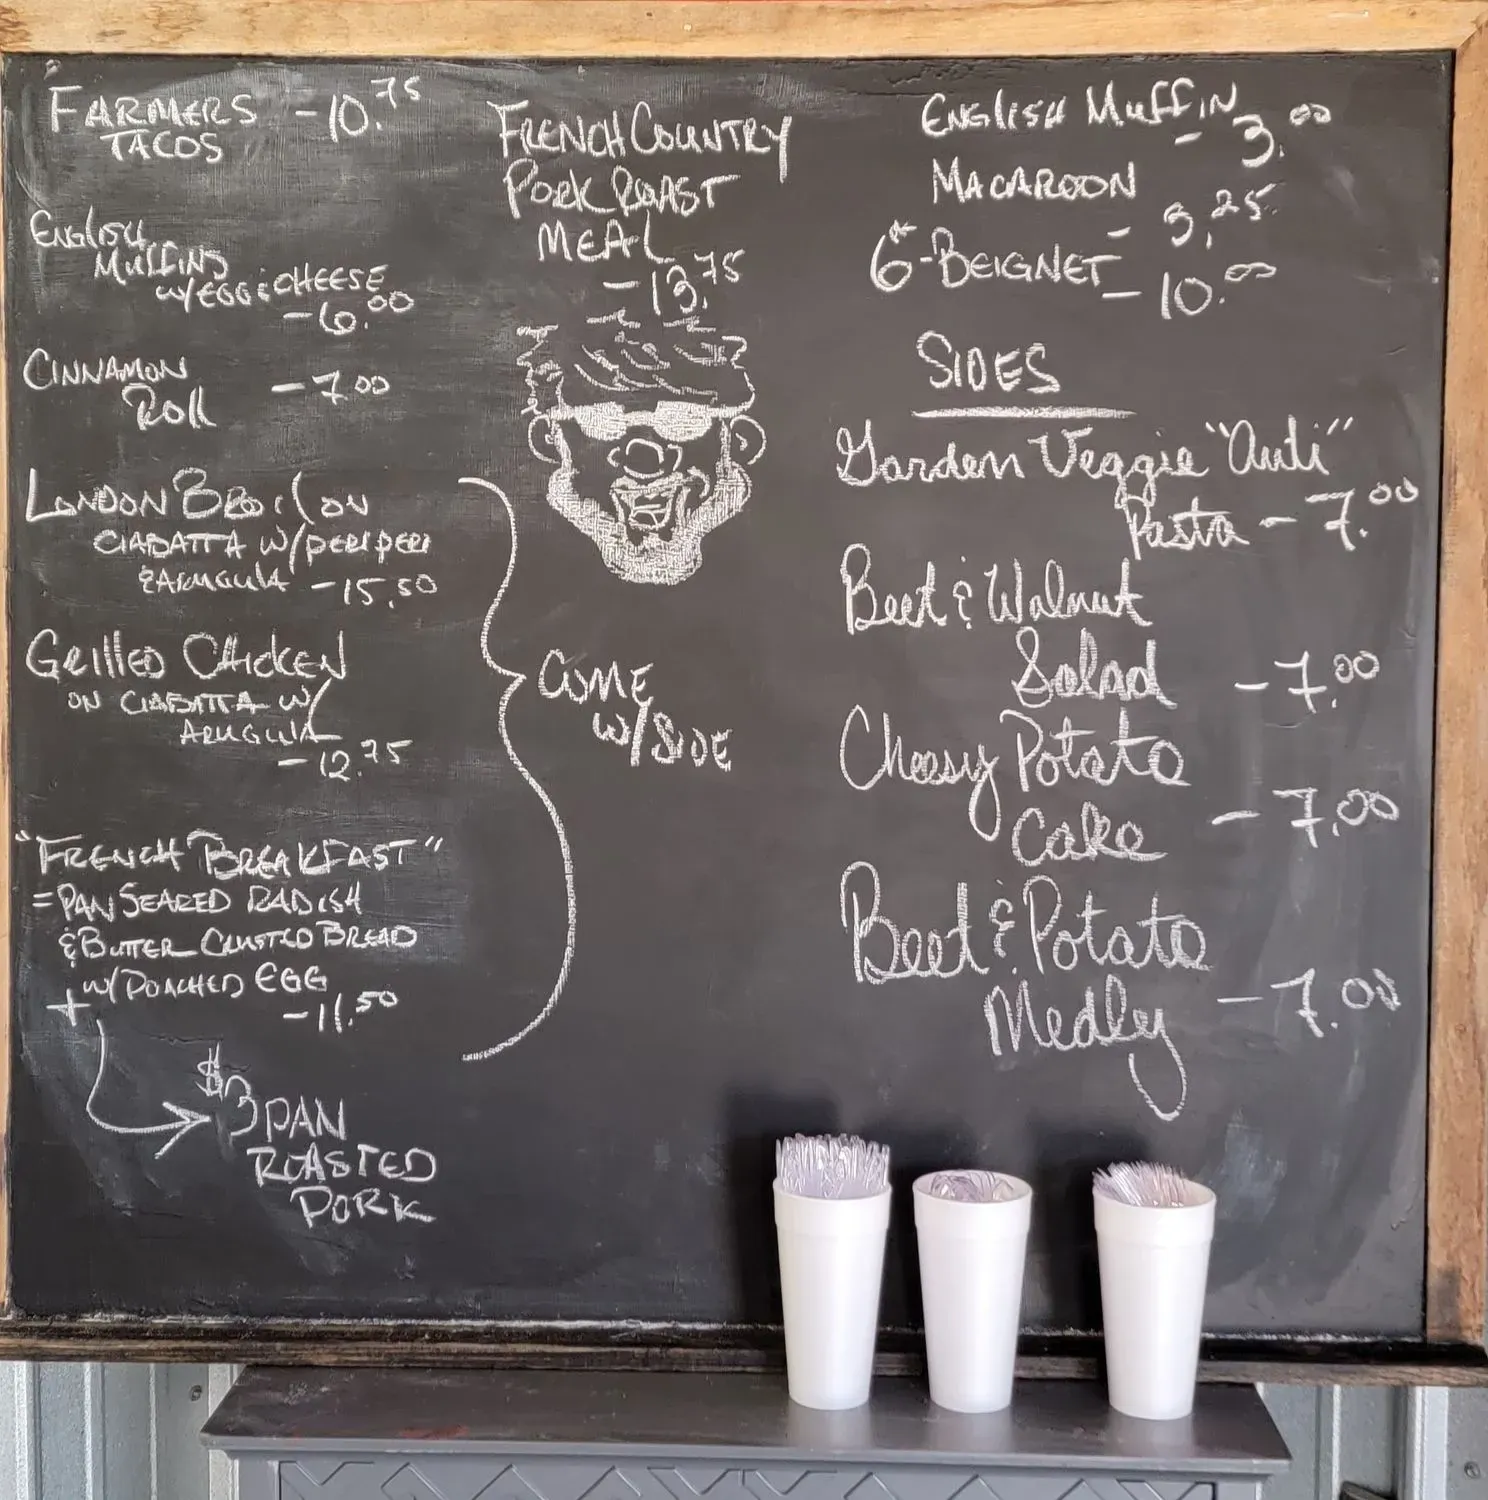 FARMERS -10.75
TACOS
ENGLISH
MUFFINS
W/EGG & CHEESE
-6.00
CINNAMON
ROLL -7.00
LONDON BROIL ON
CIABATTA W/PERI PERI
& ARUGULA -15.50
GRILLED CHICKEN
ON CIABATTA W/
ARUGULA
-12.75
"FRENCH BREAKFAST"
=PAN SEARED RADISH
& BUTTER CRUSTED BREAD
W/POACHED EGG
+ -11.50
$3 PAN
ROASTED
PORK
FRENCH COUNTRY
PORK ROAST
MEAL
-13.75
COME
W/SIDE
ENGLISH MUFFIN
- 3.00
MACAROON
- 3.25
6"-BEIGNET
- 10.00
SIDES
Garden Veggie "Anti"
Pasta - 7.00
Beet & Walnut
Salad - 7.00
Cheesy Potato
Cake - 7.00
Beet & Potato
Medley - 7.00